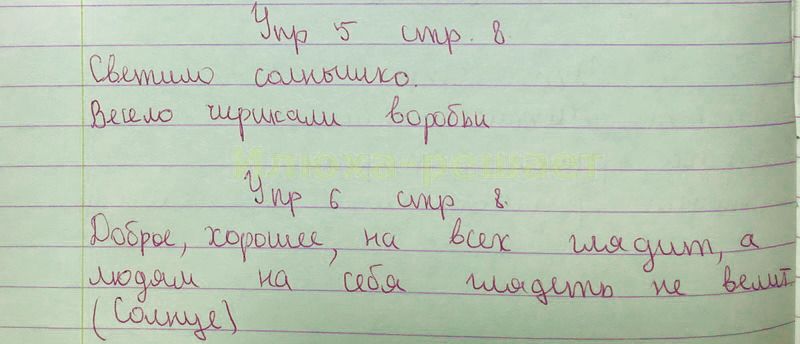 Упр 5 стр. 8.
Светило солнышко.
Весело чирикали воробьи
Илюха-решает
Упр 6 стр 8.
Доброе, хорошее, на всех глядит, а
людям на себя глядеть не велит
(Солнце)